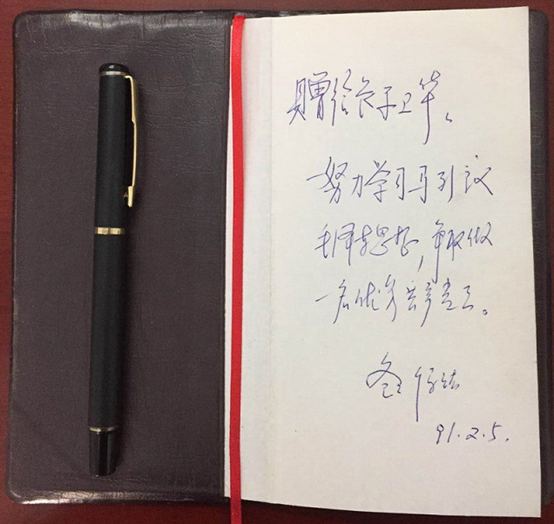 赠给长子卫华。
努力学习马列主义
毛泽东思想,争取做
一名优秀共产党员。
91.2.5.